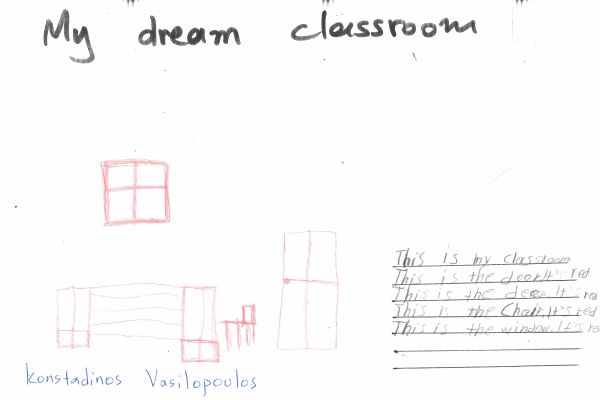 My dream classroom
This is my classroom
This is the door.It's red
This is the It's red
This is the Chair.It's red
This is the window.It's red
konstadinos Vasilopoulos